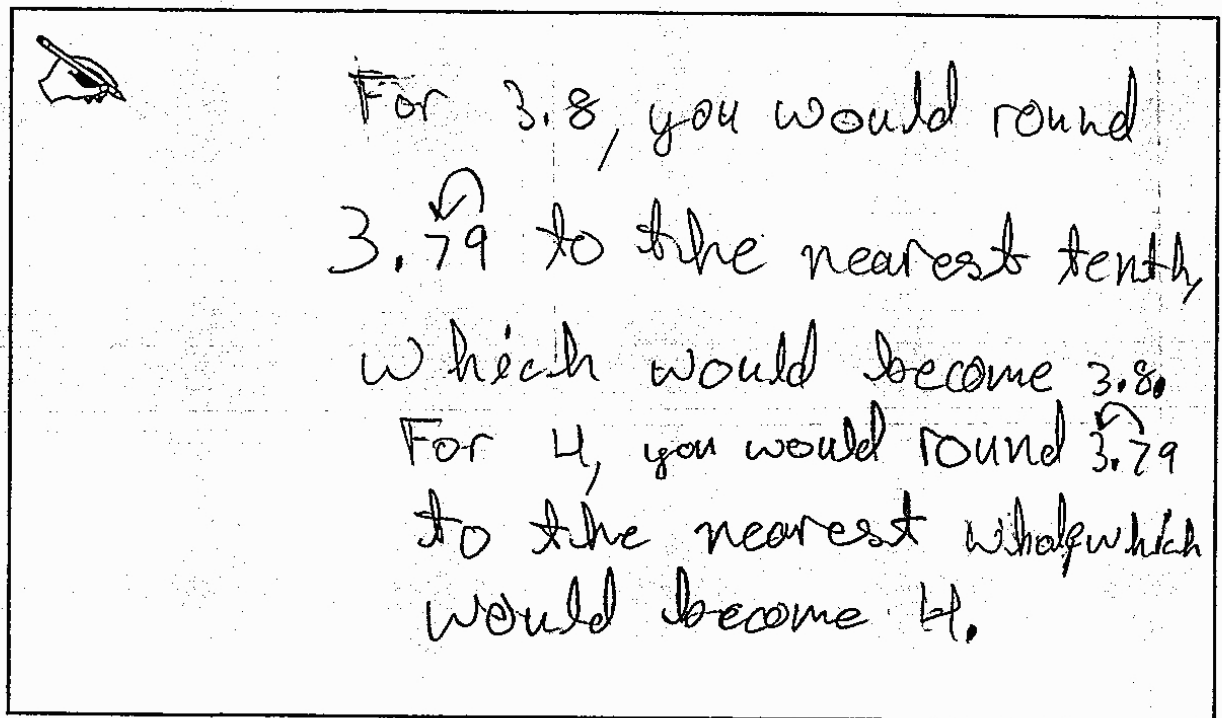 For 3.8, you would round
3.79 to the nearest tenth,
which would become 3.8.
For 4, you would round 3.79
to the nearest whole, which
would become 4.